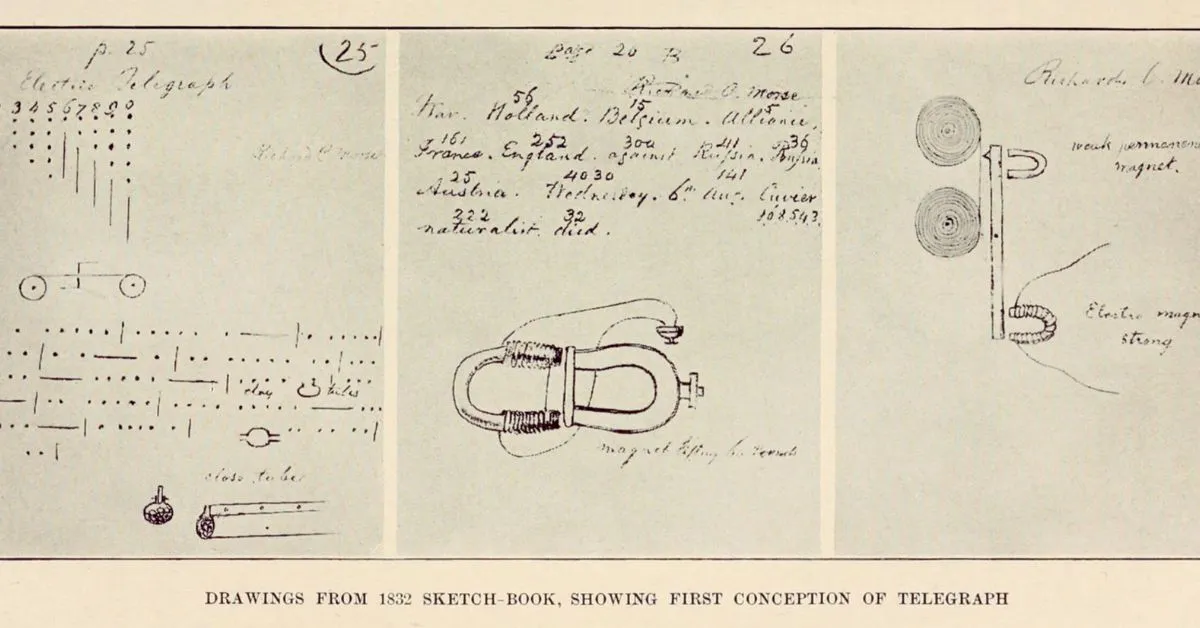 p. 25
25
Electric Telegraph
3 4 5 6 7 8 9 0
Richard C. Morse
clay tubes
close tube
Page 26 B
26
Richard C. Morse
56 15 5
War. Holland. Belgium. Alliance.
161 252 300 41 36
France. England. against Russia. Prussia
25 4030 141
Austria. Wednesday. 6th Aug. Cuvier
222 32 108,543.
naturalist died.
magnet lifting
Richard C. Mo
weak permanen
magnet.
Electro magn
strong
DRAWINGS FROM 1832 SKETCH-BOOK, SHOWING FIRST CONCEPTION OF TELEGRAPH